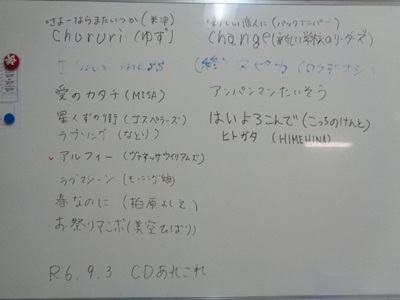 さよーならまたいつか(米津)
Chururi(ゆず)
愛のカタチ(MISIA)
星くずの街(ゴスペラーズ)
ラブソング(なとり)
アルフィー(ヴァネッサウィリアムズ)
ラブマシーン(モーニング娘)
春なのに(柏原よしえ)
お祭りマンボ(美空ひばり)
R6.9.3 CDあれこれ
(バックナンバー)
Change(新しい学校のリーダーズ)
アンパンマンたいそう
はいよろこんで(こっちのけんと)
ヒトガタ(HIMEHINA)